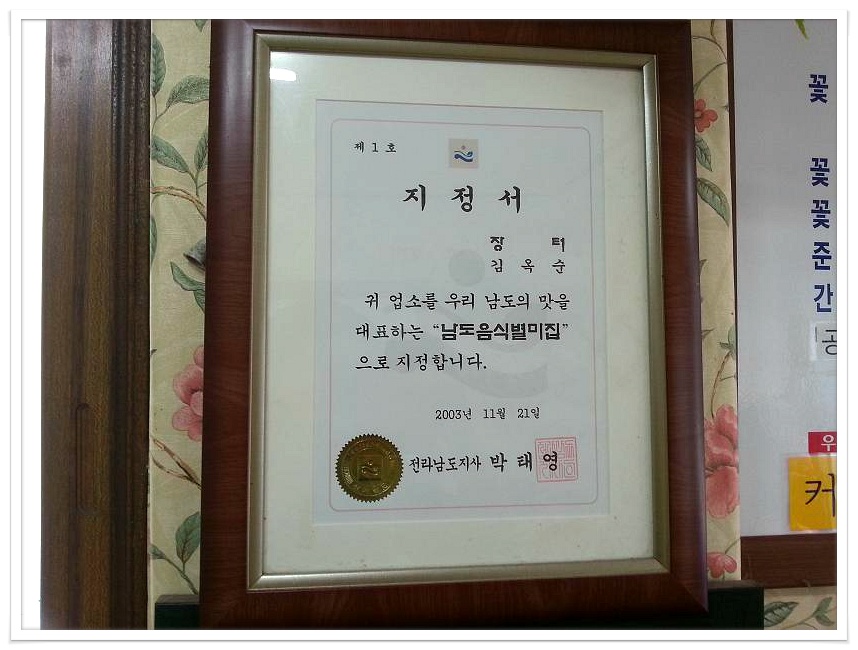 제 1 호
지 정 서
장 터
김 옥 순
귀 업소를 우리 남도의 맛을
대표하는 “남도음식별미집”
으로 지정합니다.
2003년 11월 21일
전라남도지사 박 태 영
꽃
꽃
꽃
준
간
공
우
커